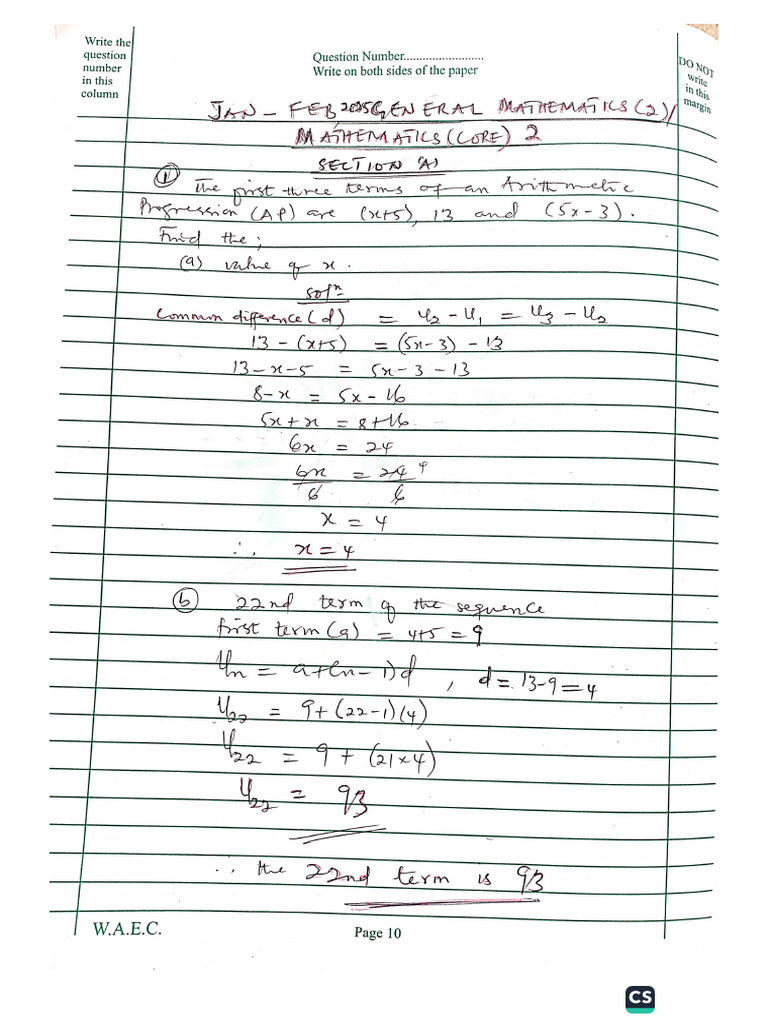 Write the
question
number
in this
column
Question Number.........................
Write on both sides of the paper
DO NOT
write
in this
margin
JAN - FEB 2025 GENERAL MATHEMATICS (2)/
MATHEMATICS (CORE) 2
SECTION 'A'
① The first three terms of an Arithmetic
Progression (AP) are (x+5), 13 and (5x-3).
Find the;
(a) value of x.
Solⁿ
Common difference (d) = U₂ - U₁ = U₃ - U₂
13 - (x+5) = (5x-3) - 13
13 - x - 5 = 5x - 3 - 13
8 - x = 5x - 16
5x + x = 8 + 16
6x = 24
6x/6 = 24/6 4
x = 4
∴ x = 4
ⓑ 22nd term of the sequence
first term (a) = 4+5 = 9
Un = a+(n-1)d , d = 13-9 = 4
U₂₂ = 9+(22-1)(4)
U₂₂ = 9 + (21×4)
U₂₂ = 93
∴ the 22nd term is 93
W.A.E.C.
Page 10
CS